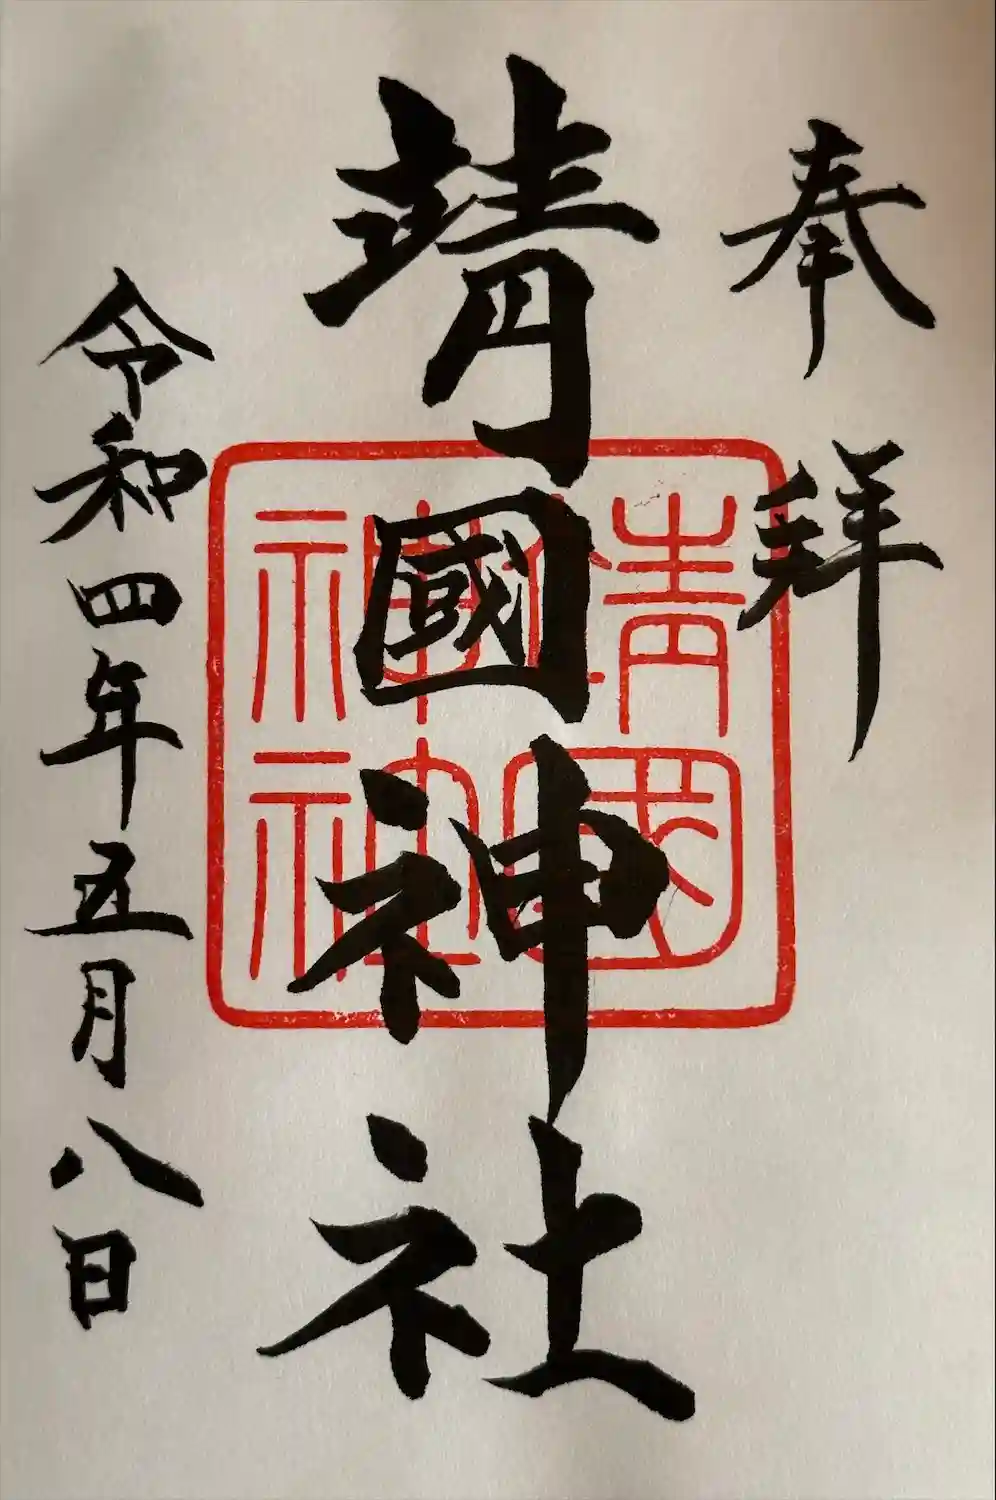 奉拝
靖國神社
令和四年五月八日
靖國
神社